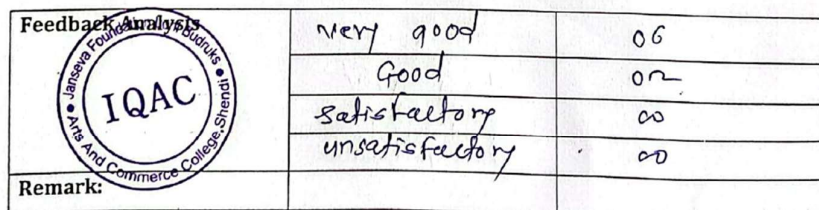 Feedback Analysis
very good 06
Good 02
satisfactory 00
unsatisfactory 00
Janseva Foundation Loni Budruks
IQAC
Arts And Commerce College, Shendi
Remark: